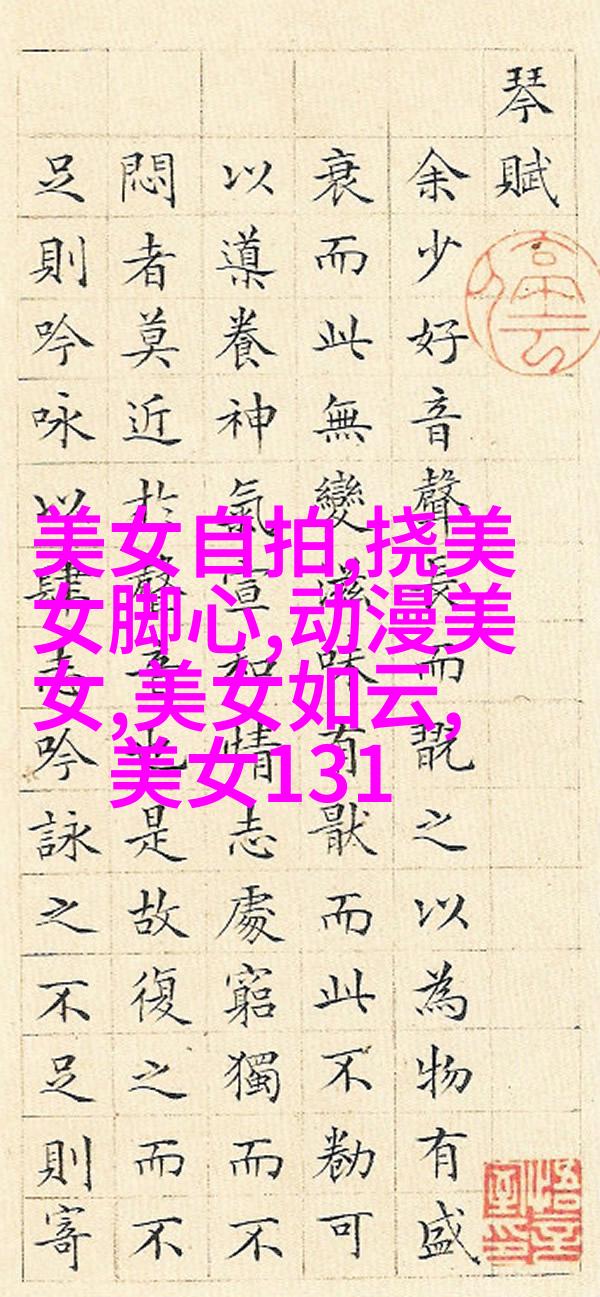 琴賦
余少好音聲長而翫之以為物有盛
衰而此無變滋味有猒而此不勌可
以導養神氣宣和情志處窮獨而不
悶者莫近於聲音也是故復之而不
足則吟咏以肆志吟詠之不足則寄
美女自拍,挠美
女脚心,动漫美
女,美女如云,
美女131